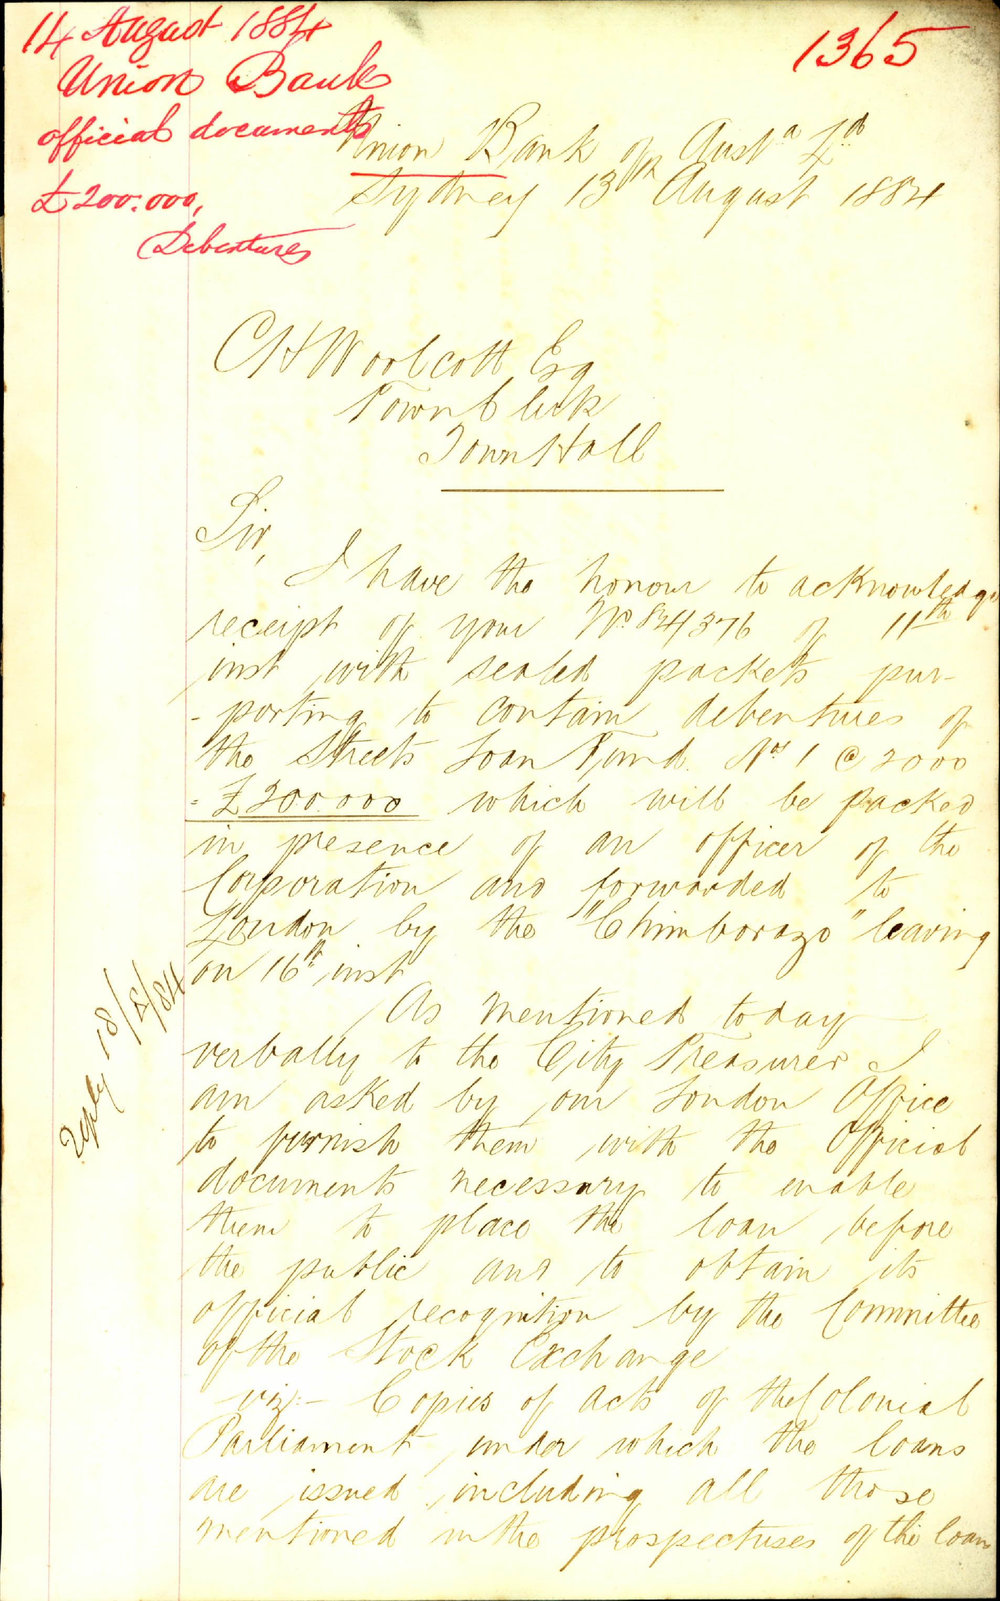 14 August 1884
Union Bank
official documents
£200.000,
Debentures
1365
Union Bank of Austa Ld
Sydney 13th August 1884
C H Woolcott Esq
Town Clerk
Town Hall
Sir,
I have the honour to acknowledge
receipt of your No. 84/376 of 11th
inst with sealed packets pur-
- porting to contain debentures of
the Streets Loan Fund Nos 1 @ 2000
- £200.000 which will be packed
in presence of an officer of the
Corporation and forwarded to
London by the "Chimborazo" leaving
on 16th inst
As mentioned today
verbally to the City Treasurer I
am asked by our London Office
to furnish them with the Official
documents necessary to enable
them to place the loan before
the public and to obtain its
official recognition by the Committee
of the Stock Exchange
viz:- Copies of acts of the Colonial
Parliament under which the loans
are issued including all those
mentioned in the prospectuses of the loan
Reply 18/8/84